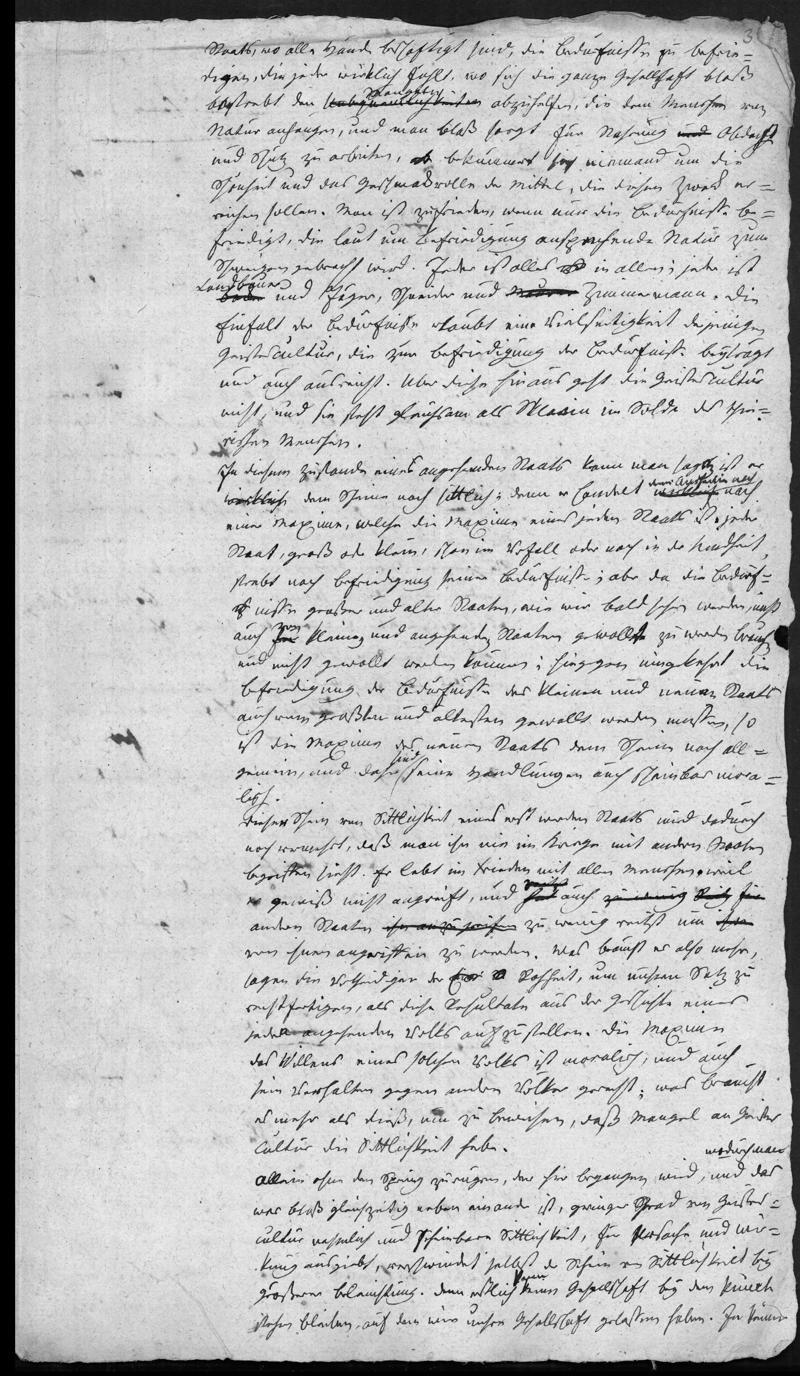 3
Staats, wo alle Hände beschäftigt sind, die Bedürfnisse zu befrie=
digen, die jeder wirklich fühlt, wo sich die ganze Gesellschaft bloß
bestrebt den Unbequemlichkeiten abzuhelfen, die dem Menschen von
Natur anhangen, und man bloß sorgt für Nahrung und Obdach
und Schutz zu arbeiten, bekümmert sich niemand um die
Schönheit und das Geschmakvolle der Mittel, die diesen Zwek er=
reichen sollen. Man ist zufrieden, wenn nur die Bedürfnisse be=
friedigt, die laut um Befriedigung ansprechende Natur zum
Schweigen gebracht wird. Jeder ist alles in allem; jeder ist
Landbauer
und Jäger, Schneider und Maurer Zimmermann. Die
Einfalt der Bedürfnisse erlaubt eine Vielseitigkeit derjenigen
Geistescultur, die zur Befriedigung der Bedürfnisse beyträgt
und auch ausreicht. Über diese hinaus geht die Geistescultur
nicht, und sie steht gleichsam als Sklavin im Solde des thie=
rischen Menschen.
In diesem Zustande eines angehenden Staats kann man sagen ist er
wirklich dem Scheine nach sittlich; denn er handelt
dem Anschein nach
einer Maxime, welche die Maxime eines jeden Staats ist. jeder
Staat, groß oder klein, schon im Verfall oder noch in der Kindheit,
strebt nach Befriedigung seiner Bedürfnisse; aber da die Bedürf=
nisse großer und alter Staaten, wie wir bald sehen werden, nicht
auch von kleinen und angehenden Staaten gewollt zu werden brauch
und nicht gewollt werden können; hingegen umgekehrt die
Befriedigung der Bedürfnisse des kleinen und neuen Staats
auch vom größten und ältesten gewollt werden müssen, so
ist die Maxime des neuen Staats dem Schein nach all=
gemein, und daher sind seine Handlungen auch scheinbar mora=
lisch.
Dieser Schein von Sittlichkeit eines erst werdenden Staats wird dadurch
noch vermehrt, daß man ihn nie im Kriege mit andern Staaten
begriffen sieht. Er lebt im Frieden mit allen Menschen, weil
er gewiß nicht angreift, und auch zu wenig Reitz für
andern Staaten ihn anzugreifen zu wenig reitzt um
von ihnen angegriffen zu werden. Was braucht es also mehr,
sagen die Vertheidiger der Rohheit, um unsern Satz zu
rechtfertigen, als diese Resultate aus der Geschichte eines
jeden angehenden Volks aufzustellen. Die Maxime
des Willens eines solchen Volks ist moralisch, und auch
sein Verhalten gegen andere Völker gerecht; was braucht
es mehr als dieß, um zu beweisen, daß Mangel an Geistes
Cultur die Sittlichkeit hebe.
wodurch man
Allein ohne den Sprung zu rügen, der hier begangen wird, und das
was bloß gleichzeitig neben einander ist, geringer Grad von Geistes=
cultur nehmlich und scheinbare Sittlichkeit, für Ursache und Wir=
kung ausgiebt, verschwindet selbst der Schein von Sittlichkeit bey
größerer Beleuchtung. Denn erstlich kann keine Gesellschaft bey dem Punct
stehen bleiben, auf dem wir unsere Gesellschaft gelassen haben.